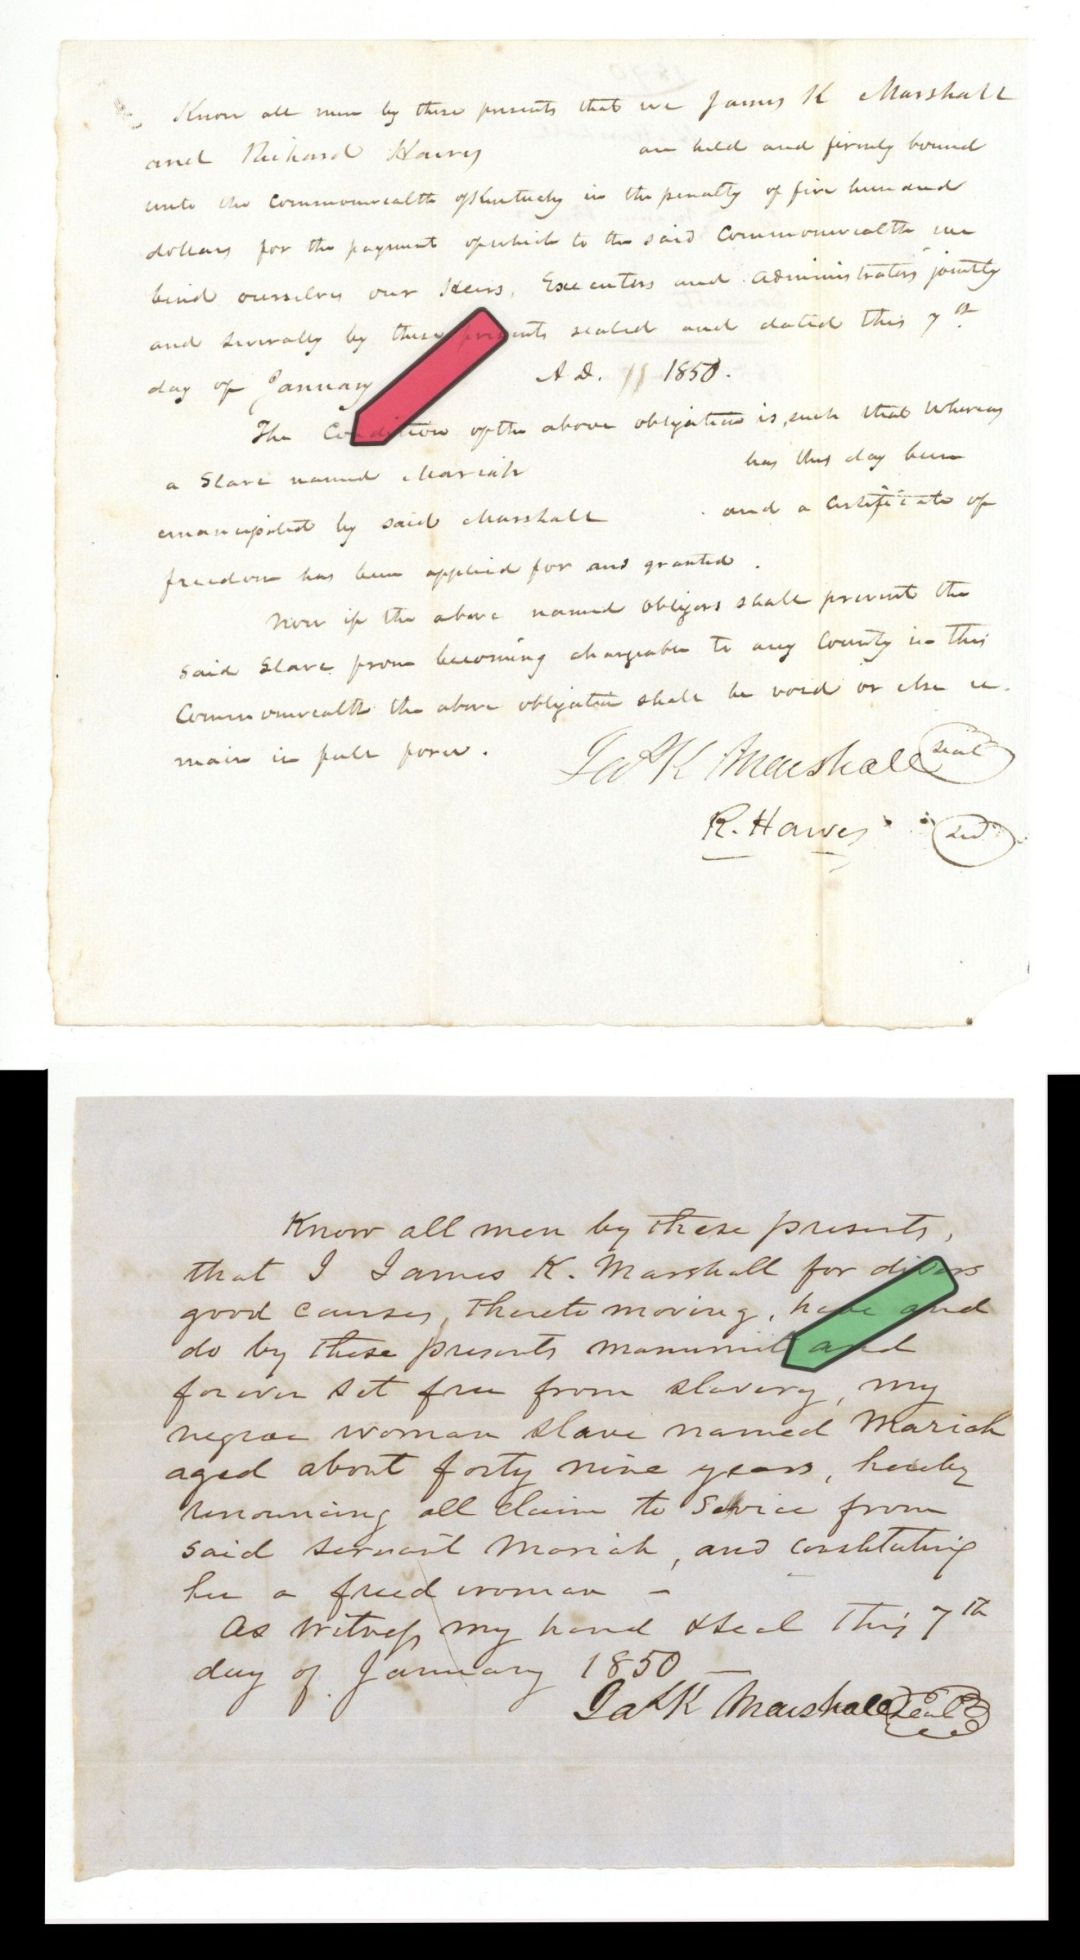 Know all men by these presents that we James K Marshall
and Richard Hawes are held and firmly bound
unto the Commonwealth of Kentucky in the penalty of five hundred
dollars for the payment of which to the said Commonwealth we
bind ourselves our Heirs, Executors and Administrators jointly
and severally by these presents sealed and dated this 7th
day of January A.D. 1850.
The Condition of the above obligation is such that Whereas
a Slave named Mariah has this day been
emancipated by said Marshall and a Certificate of
freedom has been applied for and granted.
Now if the above named obligors shall prevent the
said Slave from becoming chargeable to any County in this
Commonwealth the above obligation shall be void or else re-
main in full force.
Jas K Marshall Seal
R. Hawes Seal
Know all men by these presents,
that I James K. Marshall for divers
good causes, thereto moving, have and
do by these presents manumit and
forever set free from slavery, my
negroe woman slave named Mariah
aged about forty nine years, hereby
renouncing all claim to Service from
said servant Mariah, and constituting
her a freed woman —
As Witness my hand & Seal this 7th
day of January 1850 —
Jas K Marshall Seal